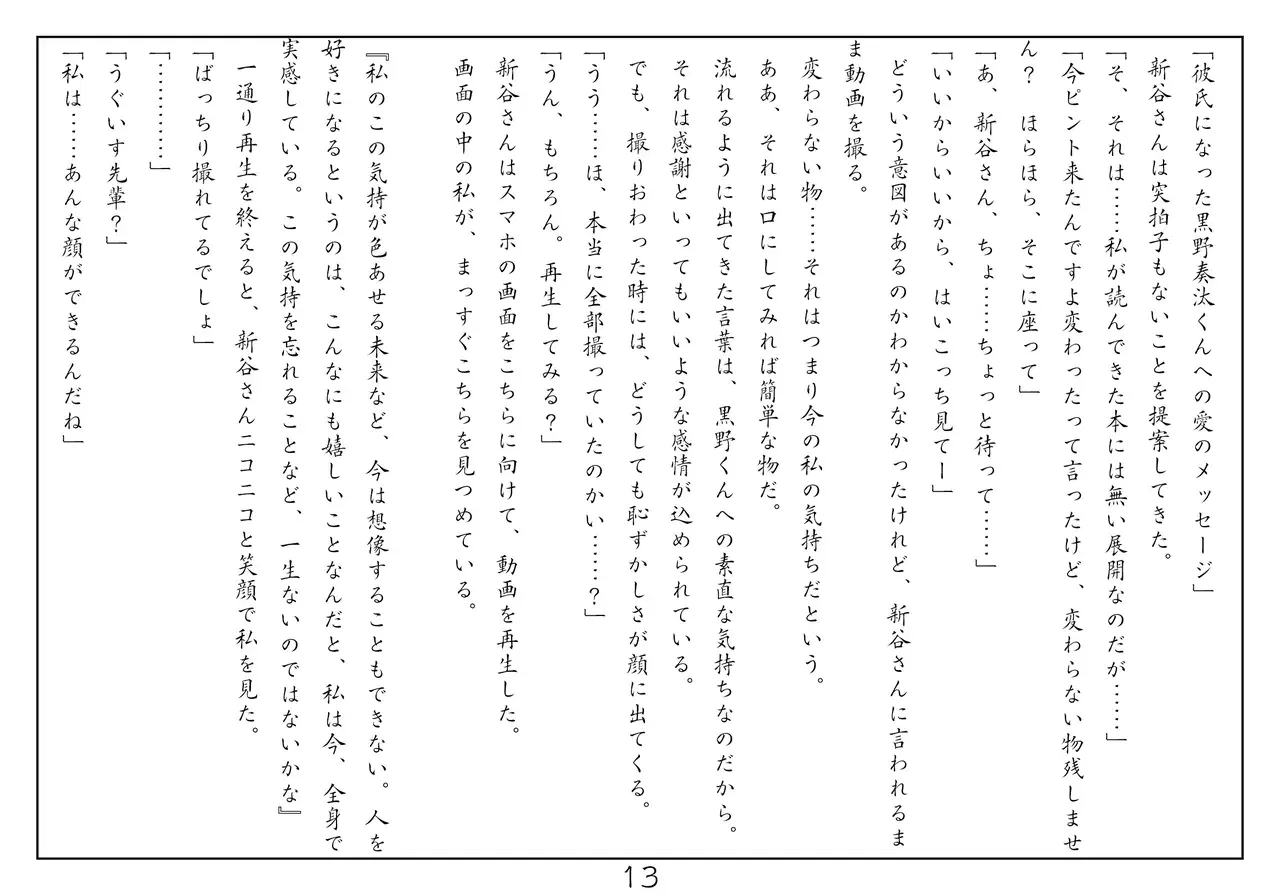 「彼氏になった黒野奏汰くんへの愛のメッセージ」
新谷さんは突拍子もないことを提案してきた。
「そ、それは……私が読んできた本には無い展開なのだが……」
「今ピント来たんですよ変わったって言ったけど、変わらない物残しませ
ん？　ほらほら、そこに座って」
「あ、新谷さん、ちょ……ちょっと待って……」
「いいからいいから、はいこっち見てー」
どういう意図があるのかわからなかったけれど、新谷さんに言われるま
ま動画を撮る。
変わらない物……それはつまり今の私の気持ちだという。
ああ、それは口にしてみれば簡単な物だ。
流れるように出てきた言葉は、黒野くんへの素直な気持ちなのだから。
それは感謝といってもいいような感情が込められている。
でも、撮りおわった時には、どうしても恥ずかしさが顔に出てくる。
「うう……ほ、本当に全部撮っていたのかい……？」
「うん、もちろん。再生してみる？」
新谷さんはスマホの画面をこちらに向けて、動画を再生した。
画面の中の私が、まっすぐこちらを見つめている。
『私のこの気持が色あせる未来など、今は想像することもできない。人を
好きになるというのは、こんなにも嬉しいことなんだと、私は今、全身で
実感している。この気持を忘れることなど、一生ないのではないかな』
一通り再生を終えると、新谷さんニコニコと笑顔で私を見た。
「ばっちり撮れてるでしょ」
「…………」
「うぐいす先輩？」
「私は……あんな顔ができるんだね」
13